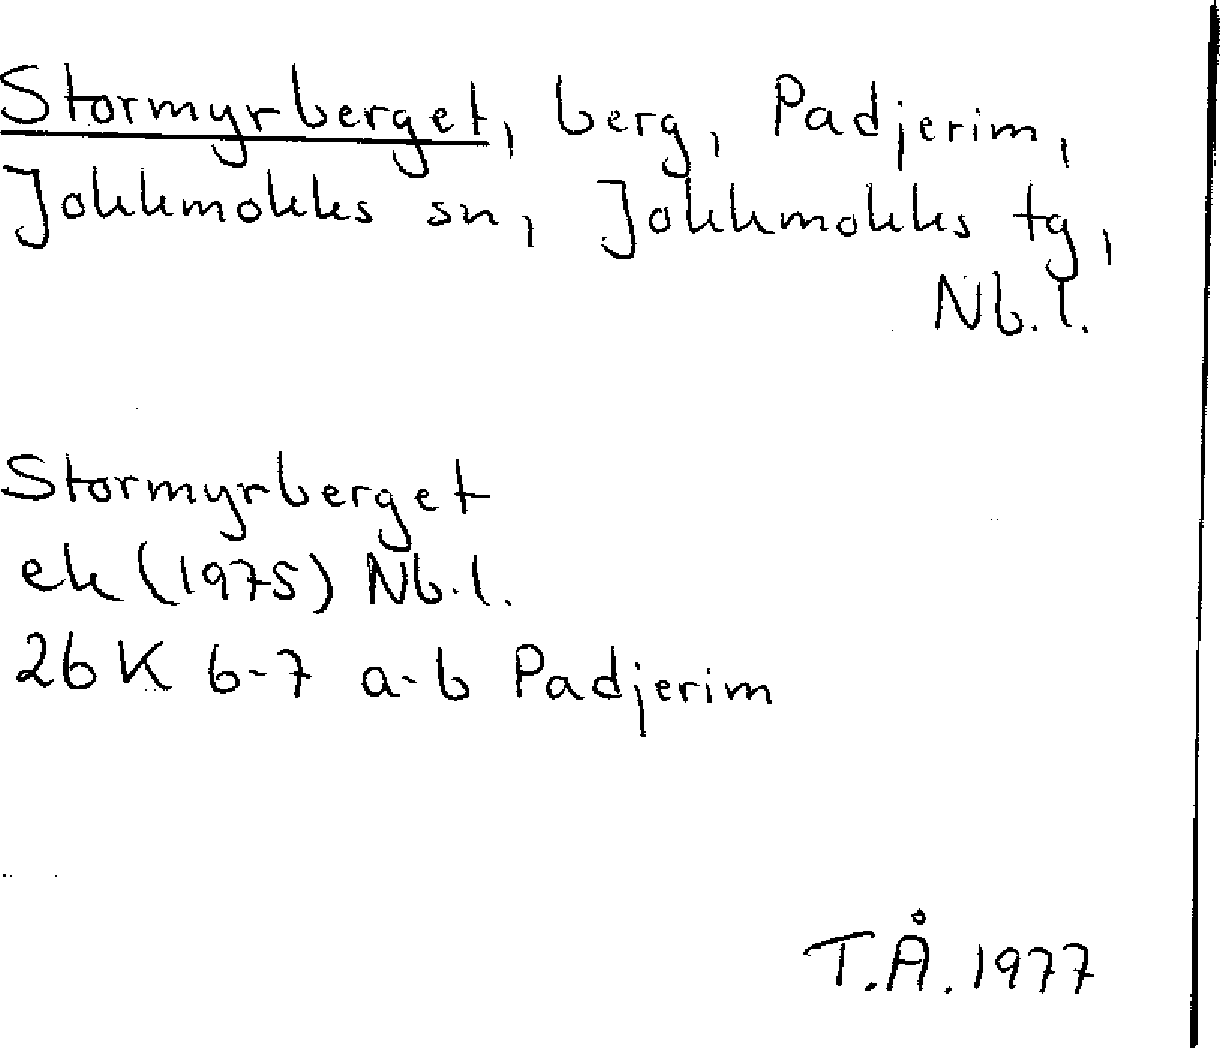 Stormyrberget, berg, Padjerim,
Jokkmokks sn, Jokkmokks tg,
Nb.l.
Stormyrberget
ek (1975) Nb.l.
26 K 6-7 a-b Padjerim
T.Å. 1977